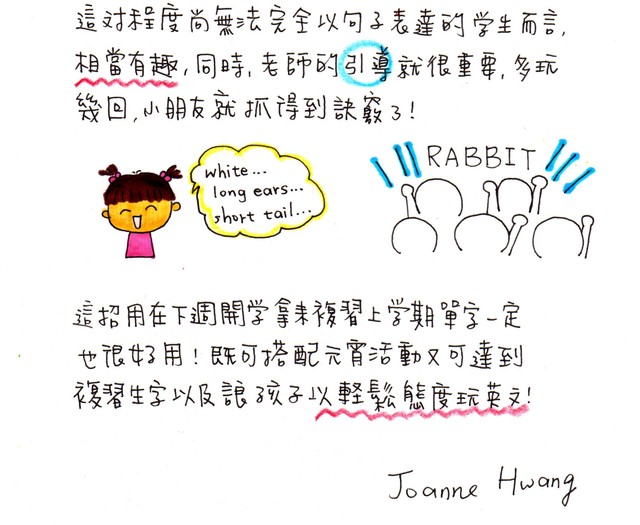 這对程度尚無法完全以句子表達的学生而言,
相當有趣,同時,老師的引導就很重要,多玩
幾回,小朋友就抓得到訣竅了!
white...
long ears...
short tail...
RABBIT
這招用在下週開学拿來複習上学期單字一定
也很好用!既可搭配元宵活動又可達到
複習生字以及讓孩子以輕鬆態度玩英文!
Joanne Hwang